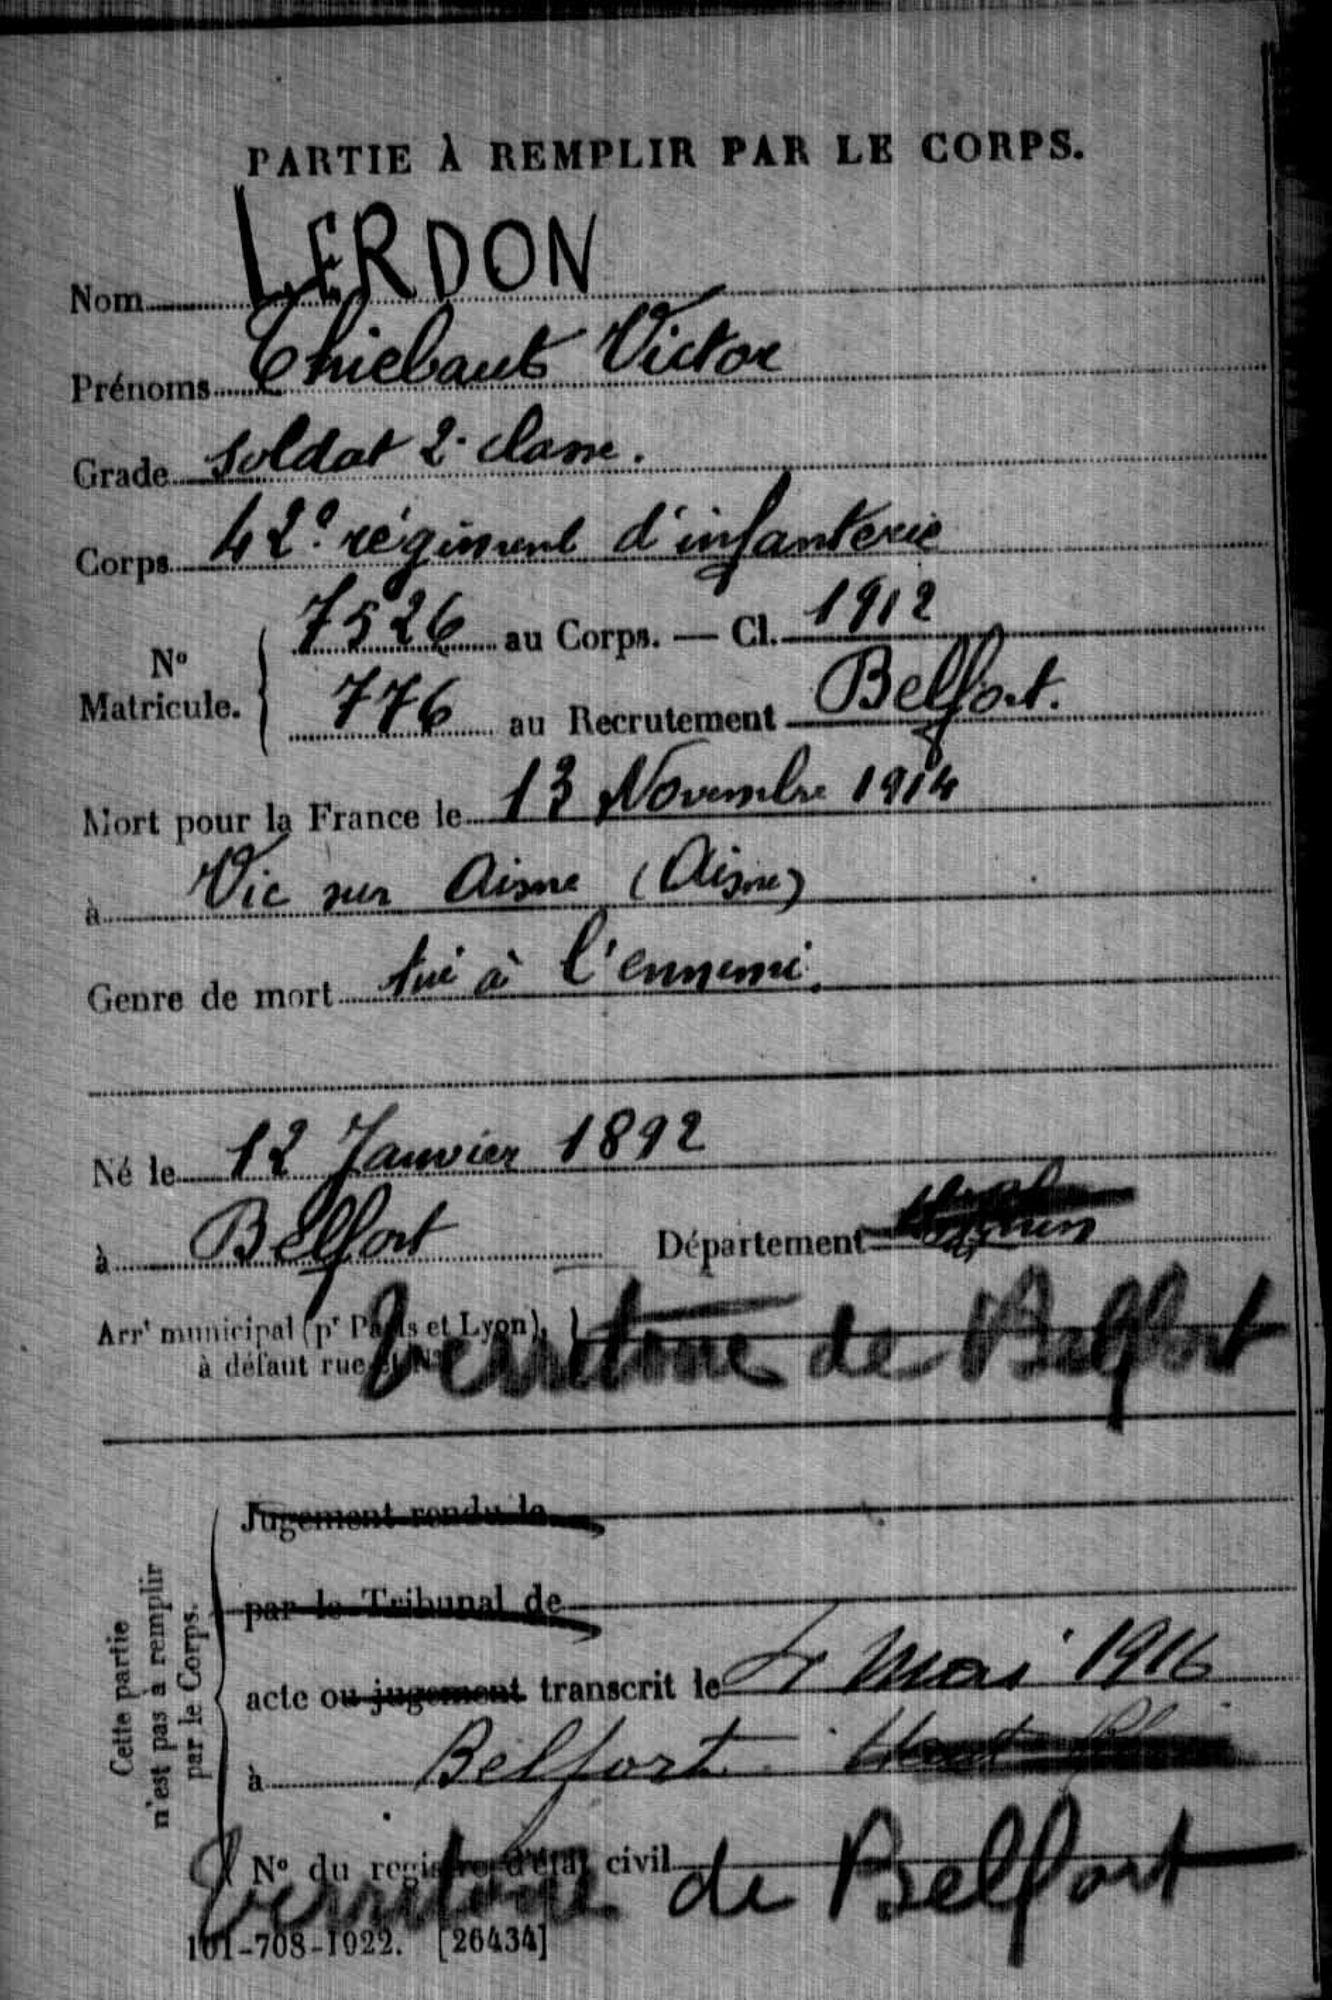 PARTIE À REMPLIR PAR LE CORPS.
Nom LERDON
Prénoms Thiebaut Victor
Grade soldat 2e classe.
Corps 42e régiment d'infanterie
N° Matricule. 7526 au Corps. — Cl. 1912
776 au Recrutement Belfort.
Mort pour la France le 13 Novembre 1914
à Vic sur Aisne (Aisne)
Genre de mort tué à l'ennemi.
Né le 12 Janvier 1892
à Belfort Département
Arrt municipal (pr Paris et Lyon),
à défaut rue et N°
Territoire de Belfort
Cette partie
n'est pas à remplir
par le Corps.
Jugement rendu le
par le Tribunal de
acte ou jugement transcrit le 4 Mai 1916
à Belfort Haut Rhin
N° du registre d'état civil
Territoire de Belfort
101-708-1922. [26434]